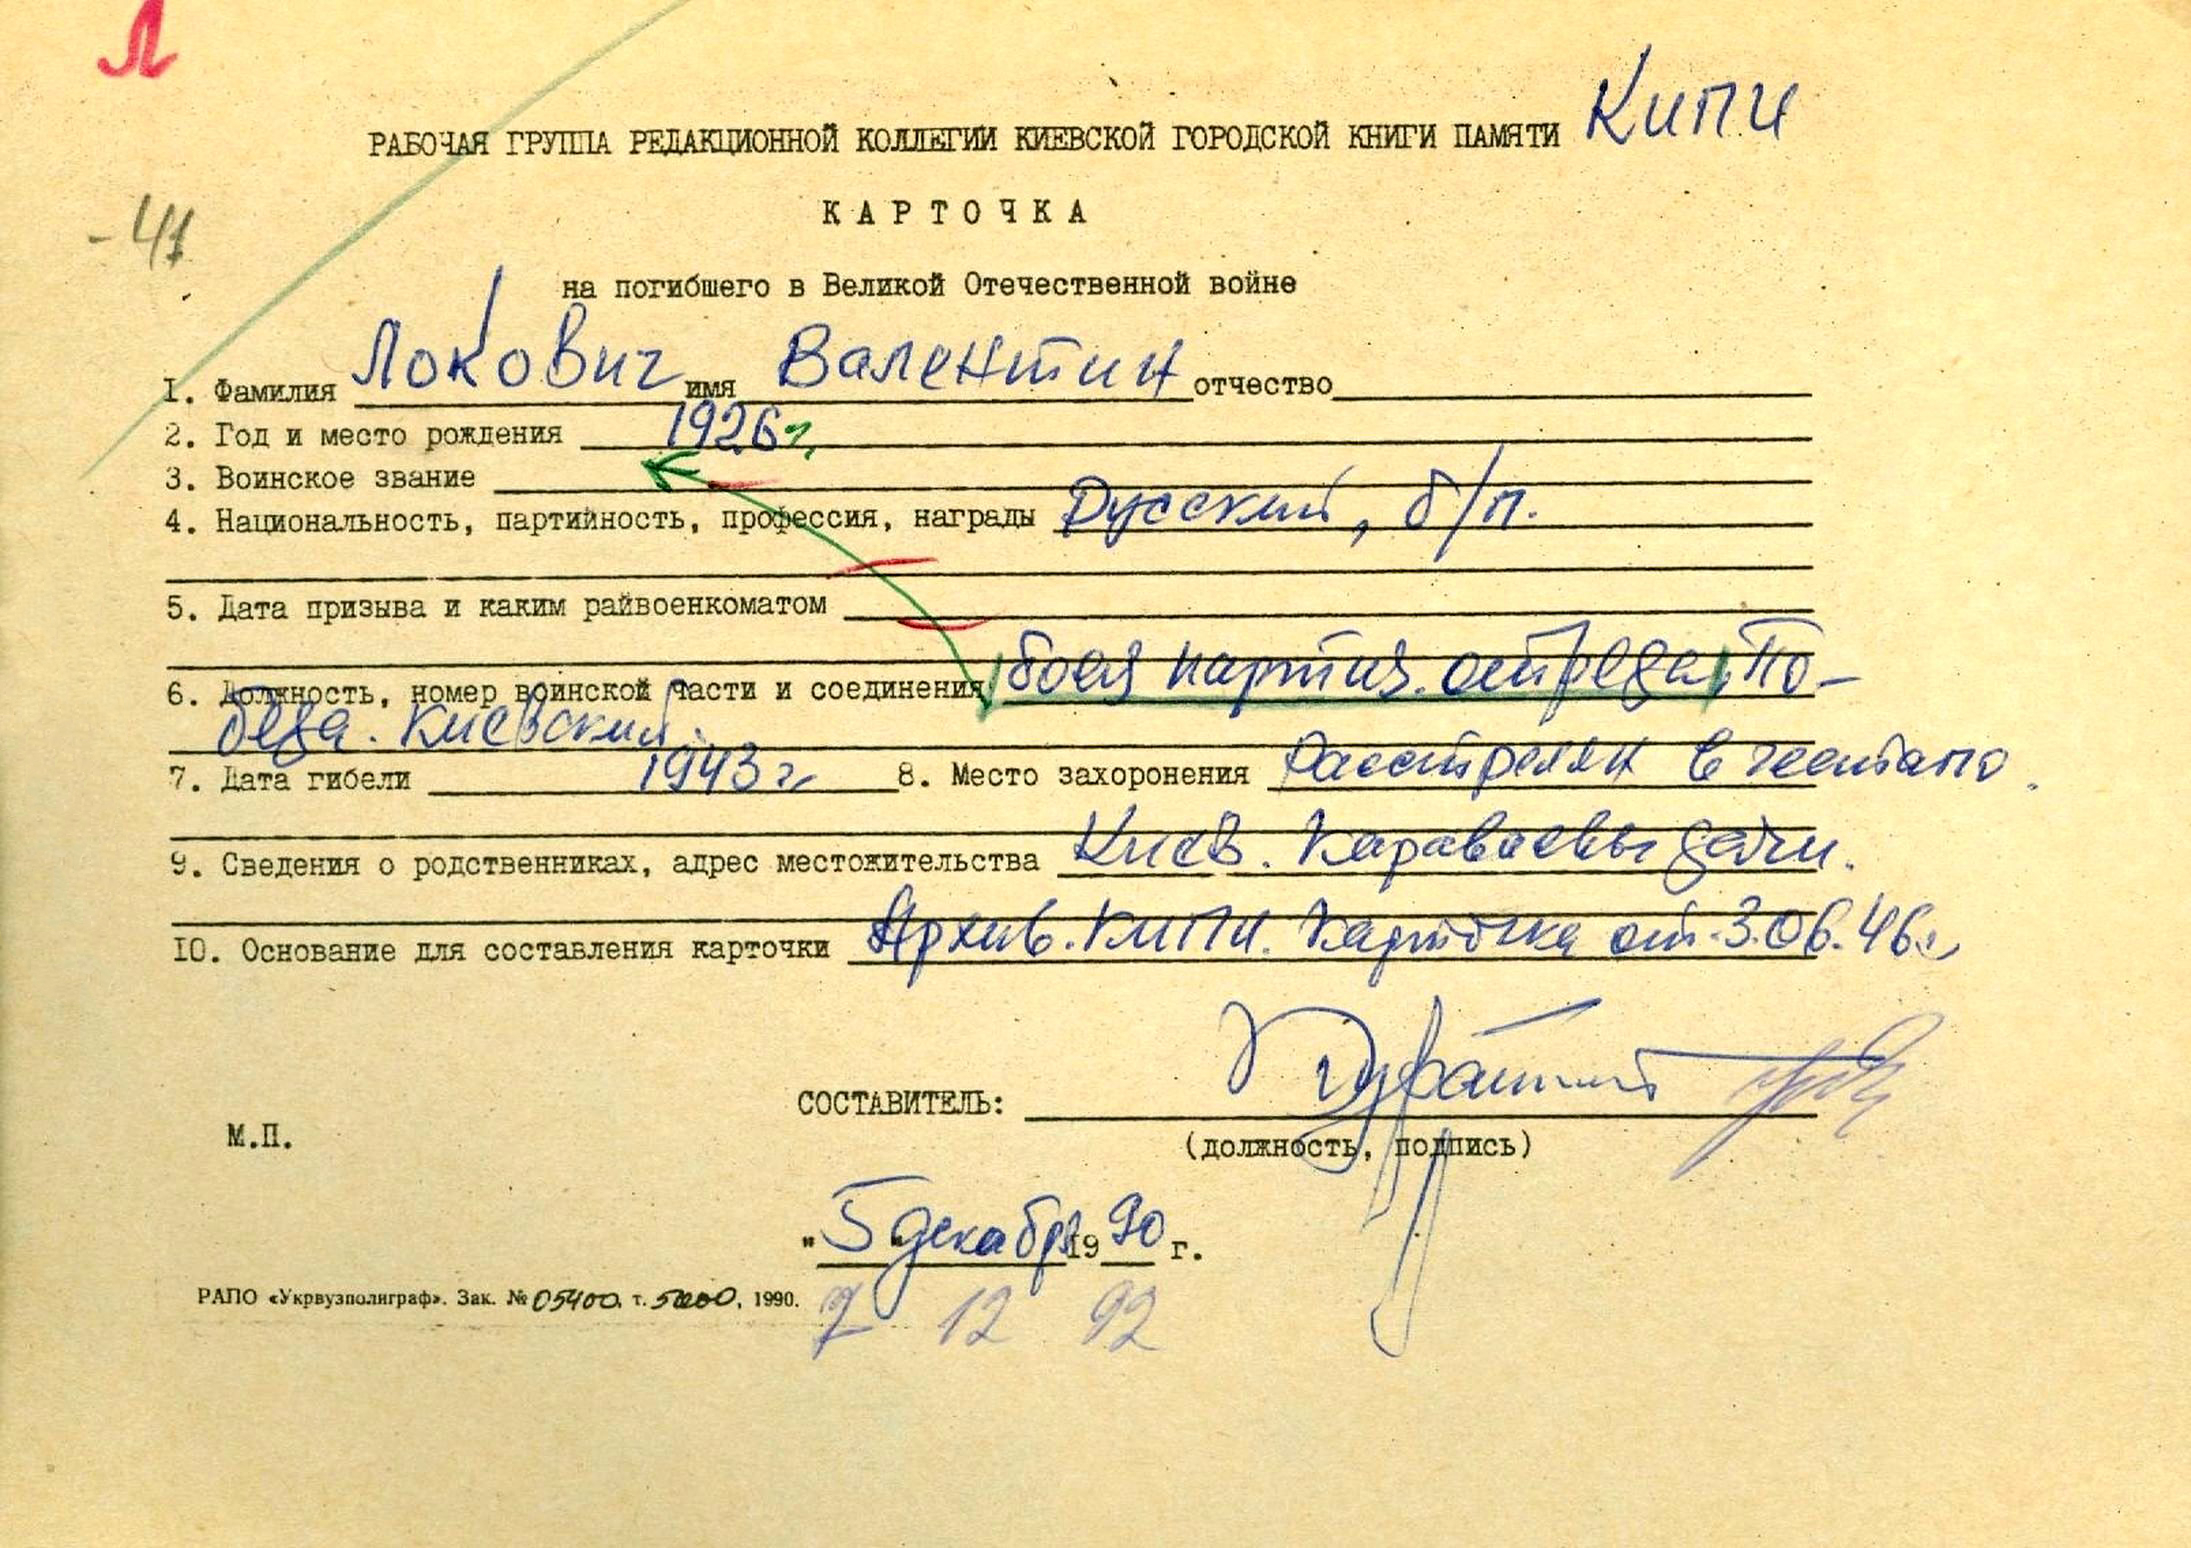 Л
РАБОЧАЯ ГРУППА РЕДАКЦИОННОЙ КОЛЛЕГИИ КИЕВСКОЙ ГОРОДСКОЙ КНИГИ ПАМЯТИ КИПИ
КАРТОЧКА
-41
на погибшего в Великой Отечественной войне
1. Фамилия Локович имя Валентин отчество
2. Год и место рождения 1926 г.
3. Воинское звание
4. Национальность, партийность, профессия, награды Русский, б/п.
5. Дата призыва и каким райвоенкоматом
6. Должность, номер воинской части и соединения боец партиз. отряда, По-
беда. Киевский.
7. Дата гибели 1943 г. 8. Место захоронения Расстрелян в гестапо.
9. Сведения о родственниках, адрес местожительства Киев. Караваевы дачи.
10. Основание для составления карточки Архив. КИПИ. Карточка от 3.06.46 г.
СОСТАВИТЕЛЬ:
М.П.
(должность, подпись)
"5" декабря 1990 г.
РАПО «Укрвузполиграф». Зак. № 05400. т. 5000, 1990.
7 12 92